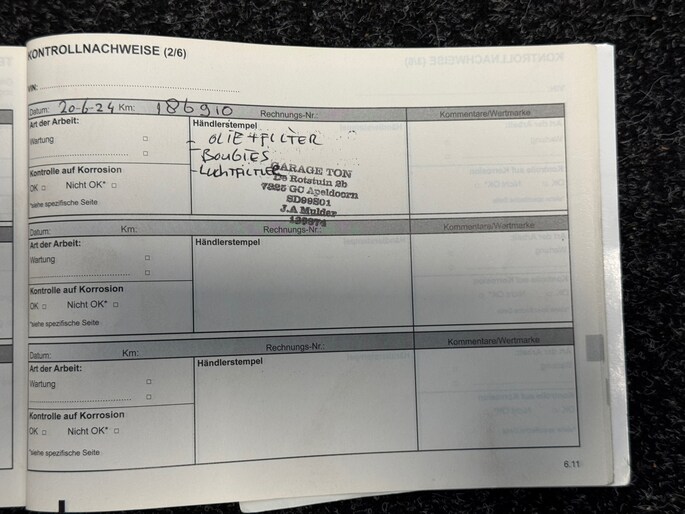 KONTROLLNACHWEISE (2/6)
VIN:
Datum: 20-6-24 Km: 186910 Rechnungs-Nr.: Kommentare/Wertmarke
Art der Arbeit:
Wartung
Kontrolle auf Korrosion
OK Nicht OK*
*siehe spezifische Seite
Händlerstempel
- OLIE + FILTER
- BOUGIES
- LUCHTFILTER
GARAGE TON
De Rotstuin 2b
7325 GC Apeldoorn
SD99S01
J.A Mulder
Datum: Km: Rechnungs-Nr.: Kommentare/Wertmarke
Art der Arbeit:
Wartung
Kontrolle auf Korrosion
OK Nicht OK*
*siehe spezifische Seite
Händlerstempel
Datum: Km: Rechnungs-Nr.: Kommentare/Wertmarke
Art der Arbeit:
Wartung
Kontrolle auf Korrosion
OK Nicht OK*
*siehe spezifische Seite
Händlerstempel
6.11